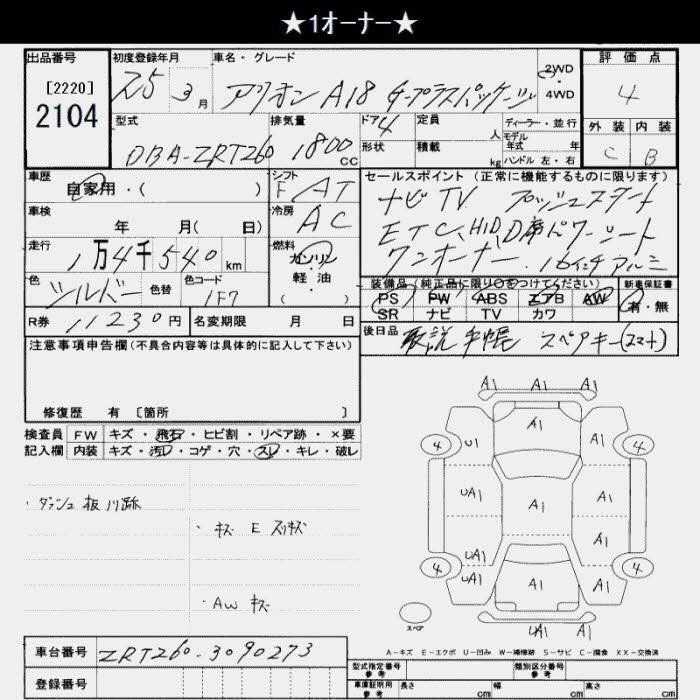 ★1オーナー★
出品番号
[2220]
2104
初度登録年月
25 3月
車名・グレード
アリオン A18 Gープラスパッケージ
2WD
・
4WD
評価点
4
外装 内装
C B
型式
DBA-ZRT260
排気量
1800 CC
ドア 4
形状
定員 人
積載 kg
ディーラー・並行
モデル
年式 年
ハンドル 左・右
車歴
自家用・( )
シフト
F AT
車検
年 月( 日)
冷房
AC
走行
1万4千540 km
燃料
ガソリン
・
軽油
( )
色
シルバー
色替
色コード
1F7
R券 11230円
名変期限 月 日
セールスポイント(正常に機能するものに限ります)
ナビ TV プッシュスタート
ETC、HID、D席パワーシート
ワンオーナー、16インチアルミ
装備品(純正品に限り○をつけてください)
新車保証書
PS PW ABS エアB AW
SR ナビ TV カワ
有・無
後日品 取説 手帳 スペアキー(スマート)
注意事項申告欄(不具合内容等は具体的に記入して下さい)
修復歴 有 [箇所 ]
検査員 FW キズ・飛石・ヒビ割・リペア跡・×要
記入欄 内装 キズ・汚れ・コゲ・穴・スレ・キレ・破レ
・キズ E スリキズ
・AW キズ
A1 A1 A1
A1
4 U1 A1 4
UA1 A1 A1
UA1 A1
4 UA1 A1 A1 4
UA1 A1
スペア
A-キズ E-エクボ U-凹み W-補修跡 S-サビ C-腐食 XX-交換済
車台番号 ZRT260-3090273
登録番号
型式指定番号
参考
類別区分番号
参考
車庫証明用
参考
長さ cm 幅 cm 高さ cm